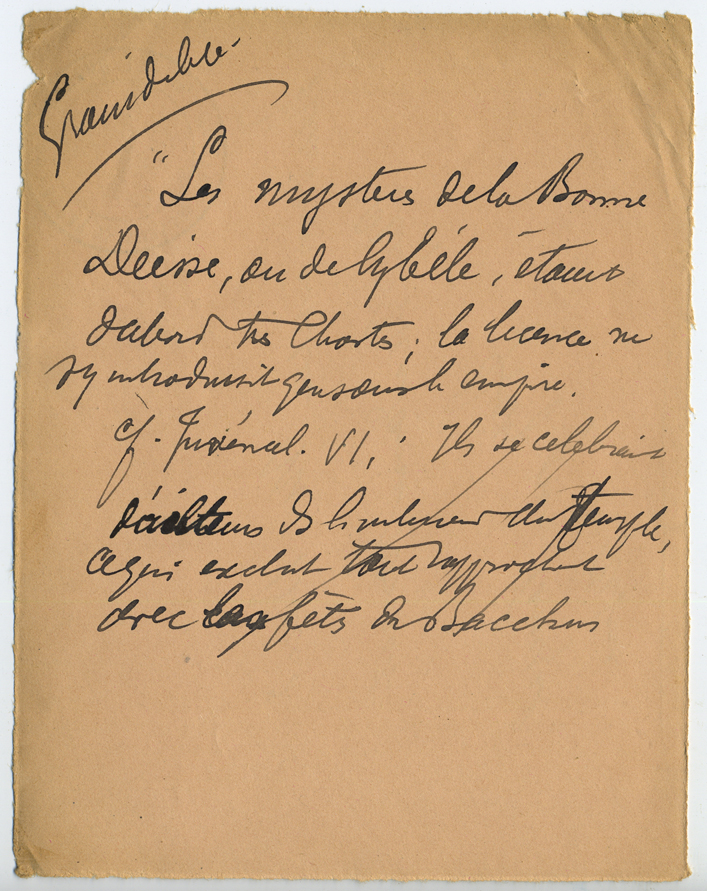 "Les mystères de la Bonne
Déesse, ou de Cybèle, étaient
d'abord très chastes; la licence ne
s'y introduisit que sous l'empire.
cf. Juvénal. VI,: Ils se célébraient
d'ailleurs ds l'intérieur du temple,
ce qui exclut tout rapprocht
avec les fêtes de Bacchus